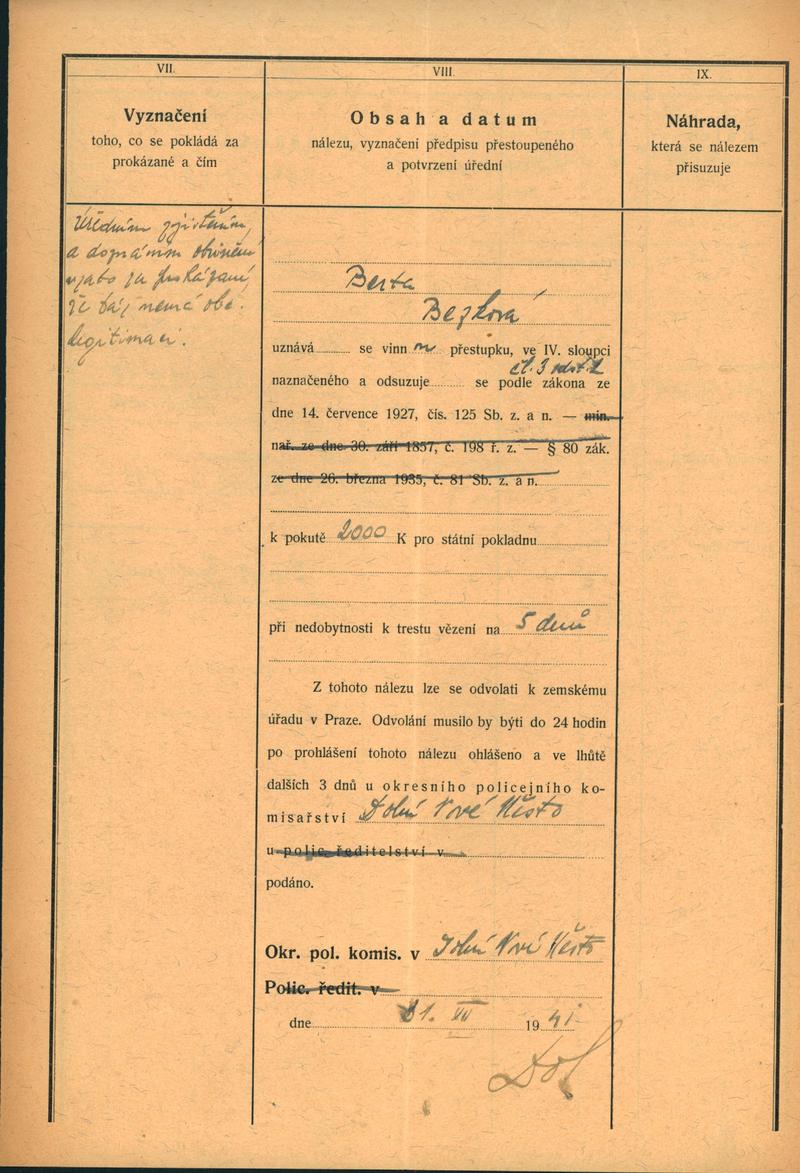 VII.
Vyznačení
toho, co se pokládá za
prokázané a čím
VIII.
Obsah a datum
nálezu, vyznačení předpisu přestoupeného
a potvrzení úřední
IX.
Náhrada,
která se nálezem
přisuzuje
Úředním zjištěním,
a doznáním obviněné
vzato za prokázané,
že táž nemá obč.
legitimaci.
Berta
Bezková
uznává se vinnou přestupku, ve IV. sloupci
čl. 3 odst. 2
naznačeného a odsuzuje se podle zákona ze
dne 14. července 1927, čís. 125 Sb. z. a n. — min.
nař. ze dne 30. září 1857, č. 198 ř. z. — § 80 zák.
ze dne 26. března 1935, č. 81 Sb. z. a n.
k pokutě 2000 K pro státní pokladnu
při nedobytnosti k trestu vězení na 5 dnů
Z tohoto nálezu lze se odvolati k zemskému
úřadu v Praze. Odvolání musilo by býti do 24 hodin
po prohlášení tohoto nálezu ohlášeno a ve lhůtě
dalších 3 dnů u okresního policejního ko-
misařství Dolní Nové Město
u polic. ředitelství v
podáno.
Okr. pol. komis. v Dolní Nové Město
Polic. ředit. v
dne 31. VII 1941